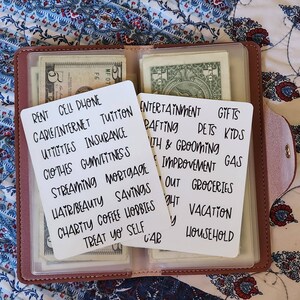 RENT CELL PHONE
CABLE/INTERNET TUITION
UTILITIES INSURANCE
CLOTHES GYM/FITNESS
STREAMING MORTGAGE
HAIR/BEAUTY SAVINGS
CHARITY COFFEE HOBBIES
TREAT YO' SELF
ENTERTAINMENT GIFTS
RAFTING PETS KIDS
TH & GROOMING
IMPROVEMENT GAS
OUT GROCERIES
HT VACATION
CAR HOUSEHOLD
5